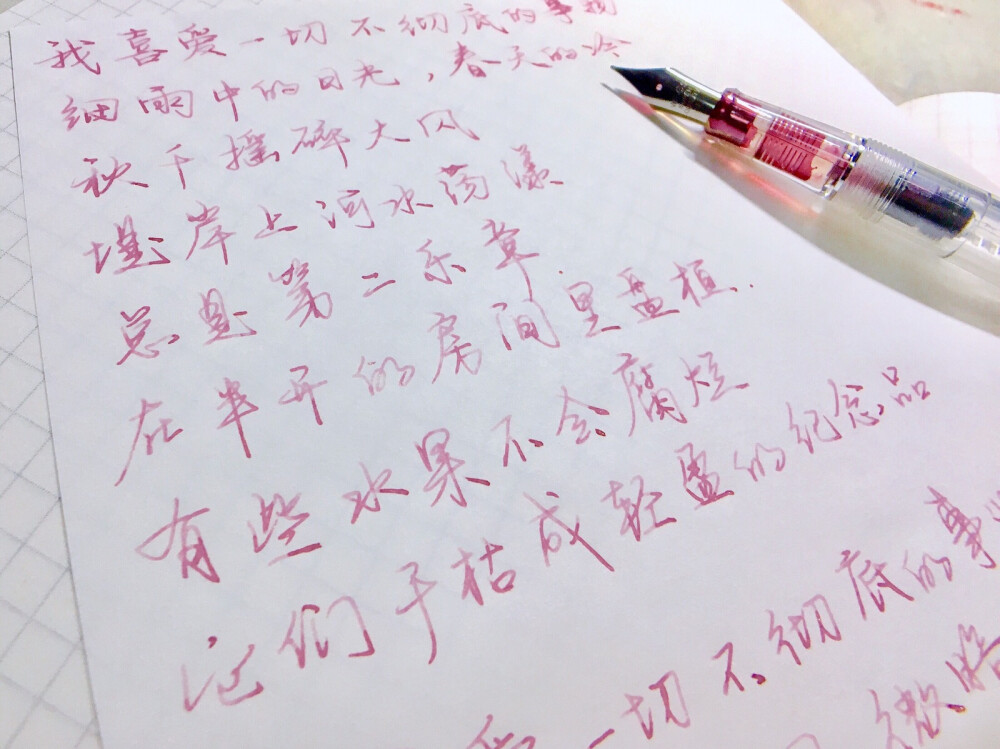 我喜爱一切不彻底的事物
细雨中的日光，春天的冷
秋千摇碎大风
堤岸上河水荡漾
总是第二乐章
在半开的房间里盘桓.
有些水果不会腐烂
它们干枯成轻盈的纪念品
爱一切不彻底的事
微暗